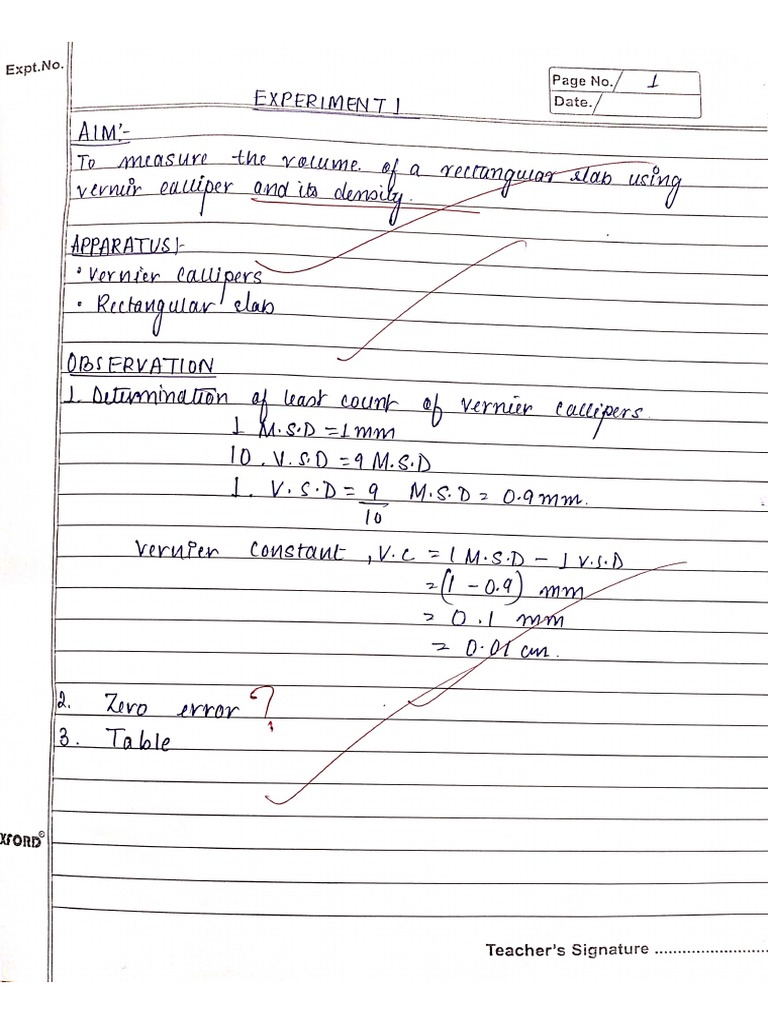 Expt.No.
Page No. 1
Date.
EXPERIMENT 1
AIM:-
To measure the volume of a rectangular slab using
vernier calliper and its density.
APPARATUS:-
• Vernier Callipers
• Rectangular slab
OBSERVATION
1. Determination of least count of vernier callipers.
1 M.S.D = 1 mm
10. V.S.D = 9 M.S.D
1. V.S.D = 9/10 M.S.D = 0.9 mm.
Vernier constant, V.C = 1 M.S.D - 1 V.S.D
= (1 - 0.9) mm
= 0.1 mm
= 0.01 cm.
2. Zero error ?
3. Table
XFORD©
Teacher's Signature ........................